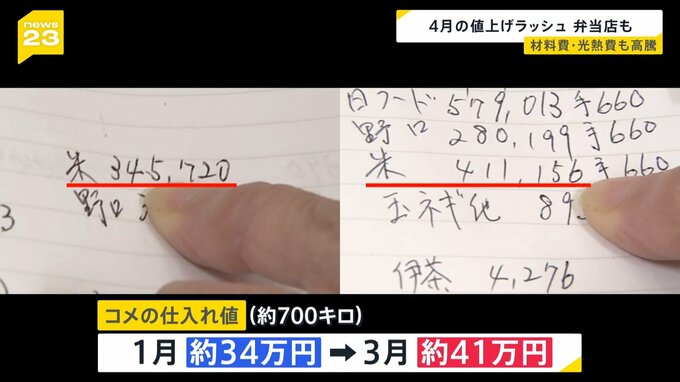 news
23
4月の値上げラッシュ 弁当店も
材料費・光熱費も高騰
米 345,720
野口
3
日フード 579,013 手660
野口 280,199 手660
米 411,156 手660
玉ネギ他 89
伊茶 4,276
コメの仕入れ値 (約700キロ)
1月 約34万円 ➡ 3月 約41万円